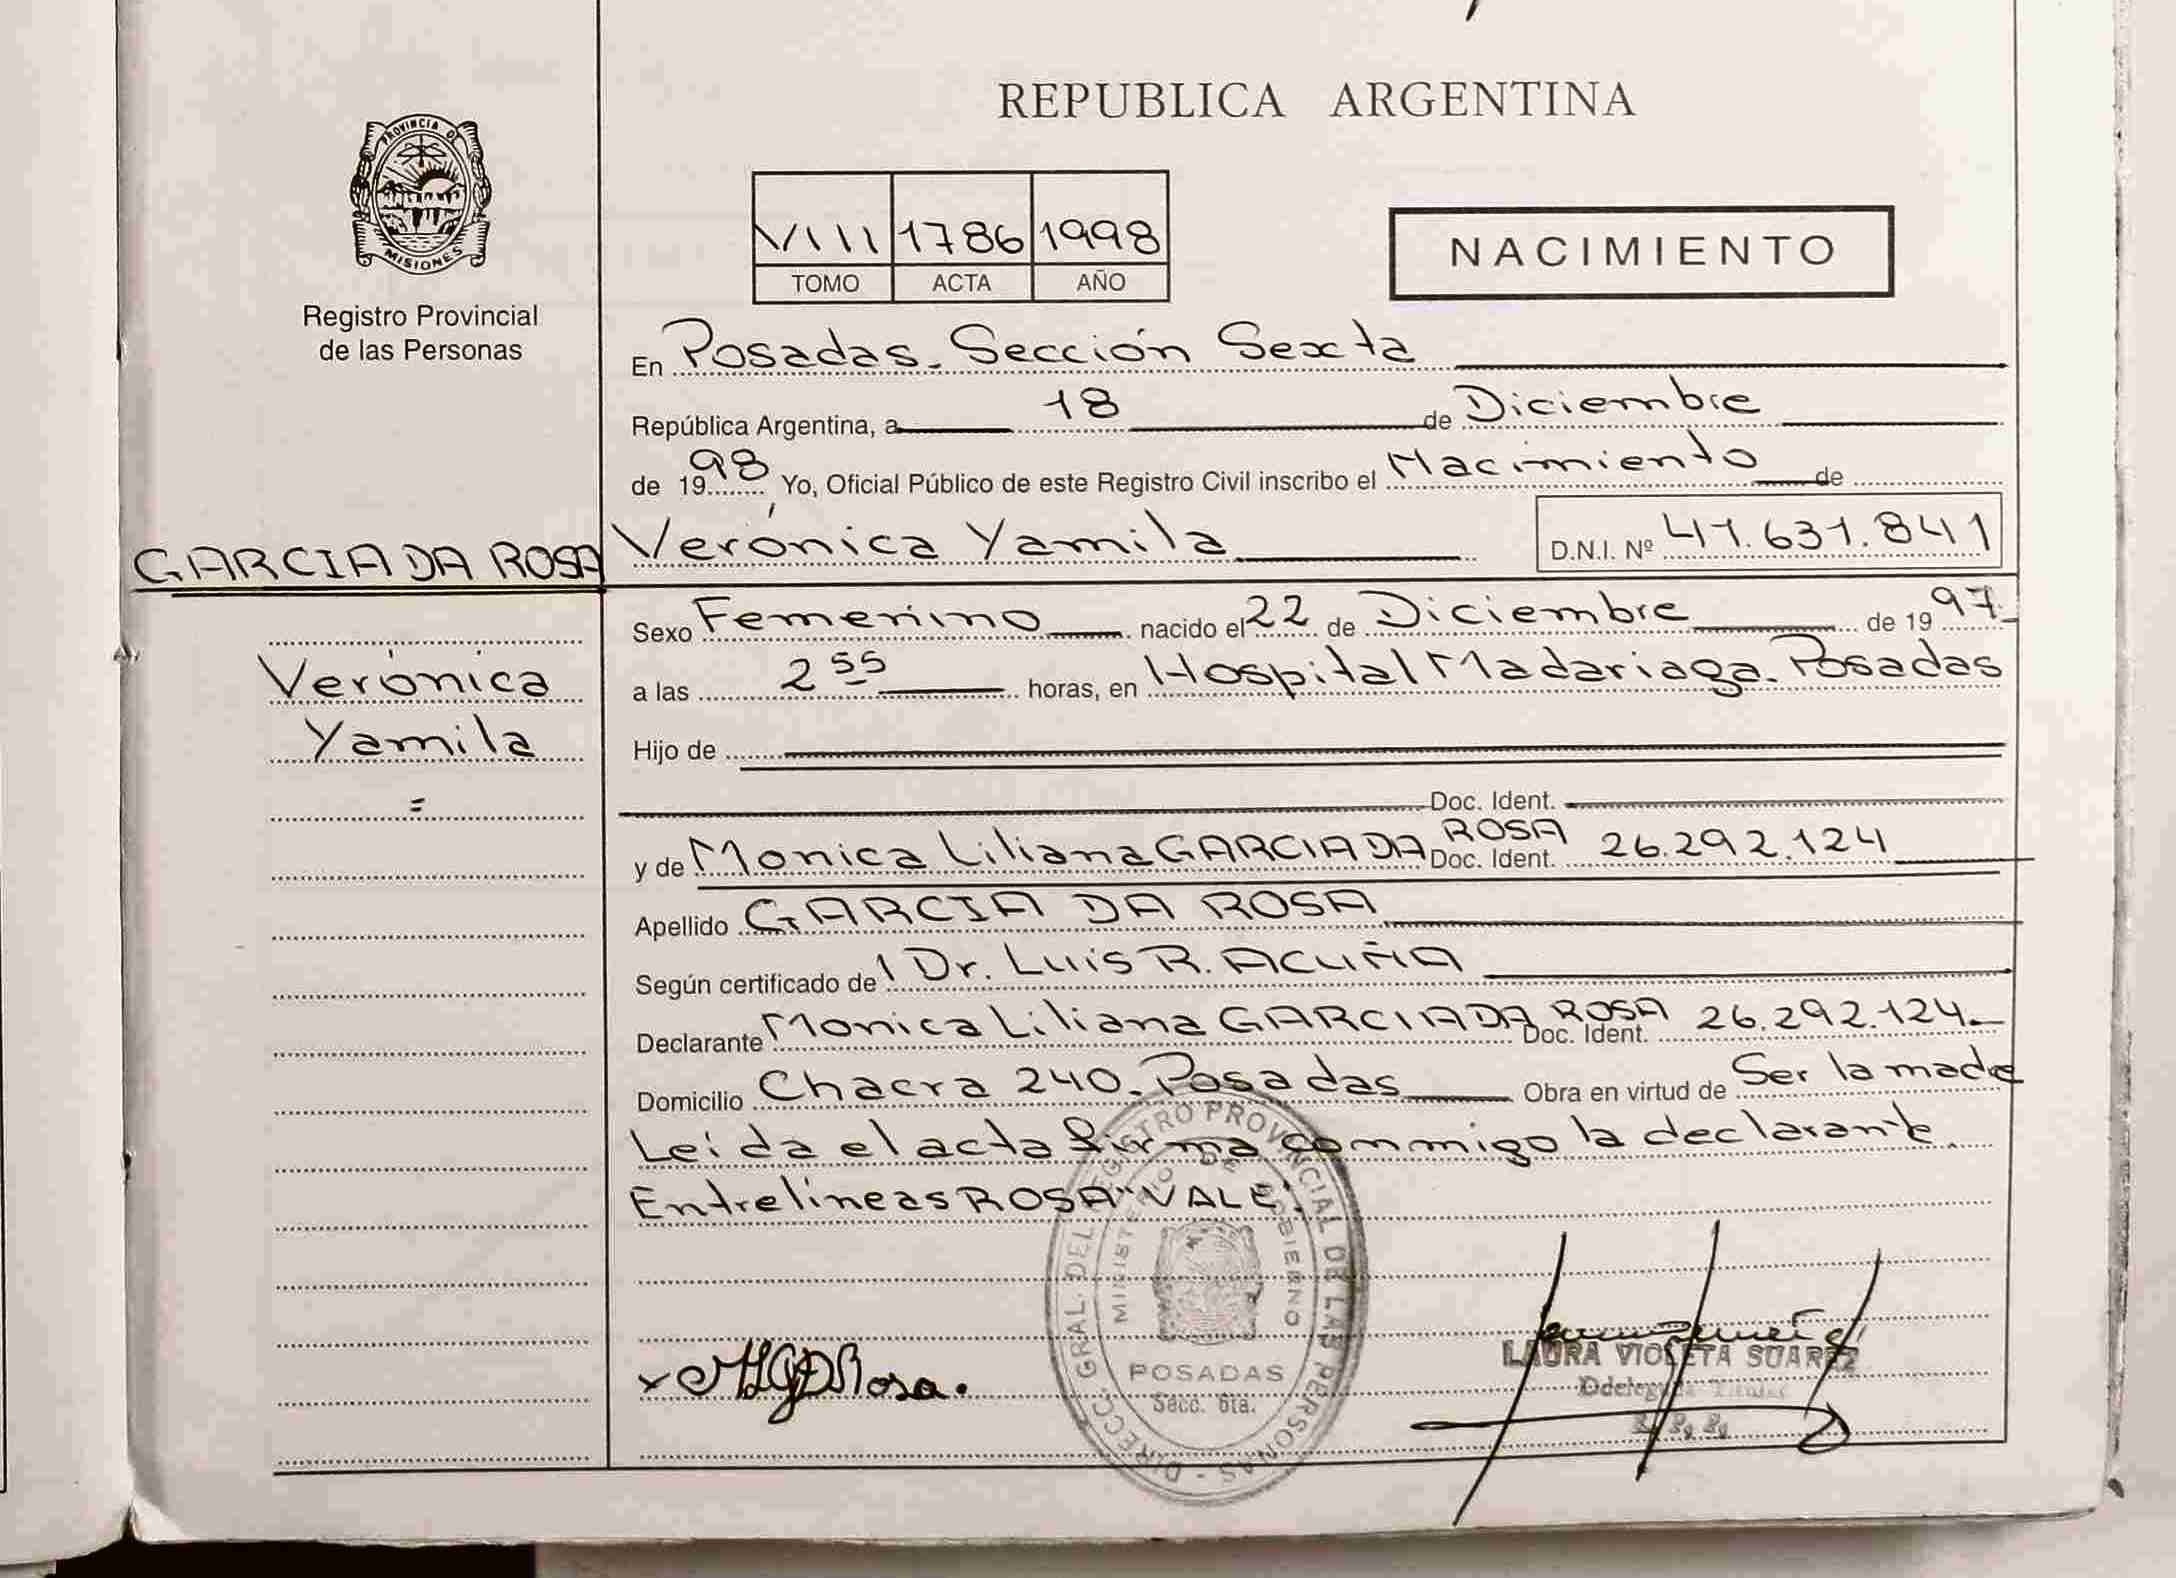 PROVINCIA DE
MISIONES
Registro Provincial
de las Personas
REPUBLICA ARGENTINA
VIII 1786 1998
TOMO ACTA AÑO
NACIMIENTO
En Posadas. Sección Sexta
República Argentina, a 18 de Diciembre
de 1998 Yo, Oficial Público de este Registro Civil inscribo el Nacimiento de
GARCIA DA ROSA Verónica Yamila D.N.I. Nº 41.631.841
Sexo Femenino nacido el 22 de Diciembre de 1997
Verónica
Yamila
=
a las 2 55 horas, en Hospital Madariaga. Posadas
Hijo de
Doc. Ident.
y de Monica Liliana GARCIA DA ROSA Doc. Ident. 26.292.124
Apellido GARCIA DA ROSA
Según certificado del Dr. Luis R. ACUÑA
Declarante Monica Liliana GARCIA DA ROSA Doc. Ident. 26.292.124.
Domicilio Chacra 240. Posadas Obra en virtud de Ser la madre
Leída el acta firma conmigo la declarante.
Entrelíneas ROSA "VALE".
DIRECC. GRAL. DEL REGISTRO PROVINCIAL DE LAS PERSONAS -
MINISTERIO DE GOBIERNO
POSADAS
Secc. 6ta.
x MLGDRosa.
LAURA VIOLETA SUAREZ